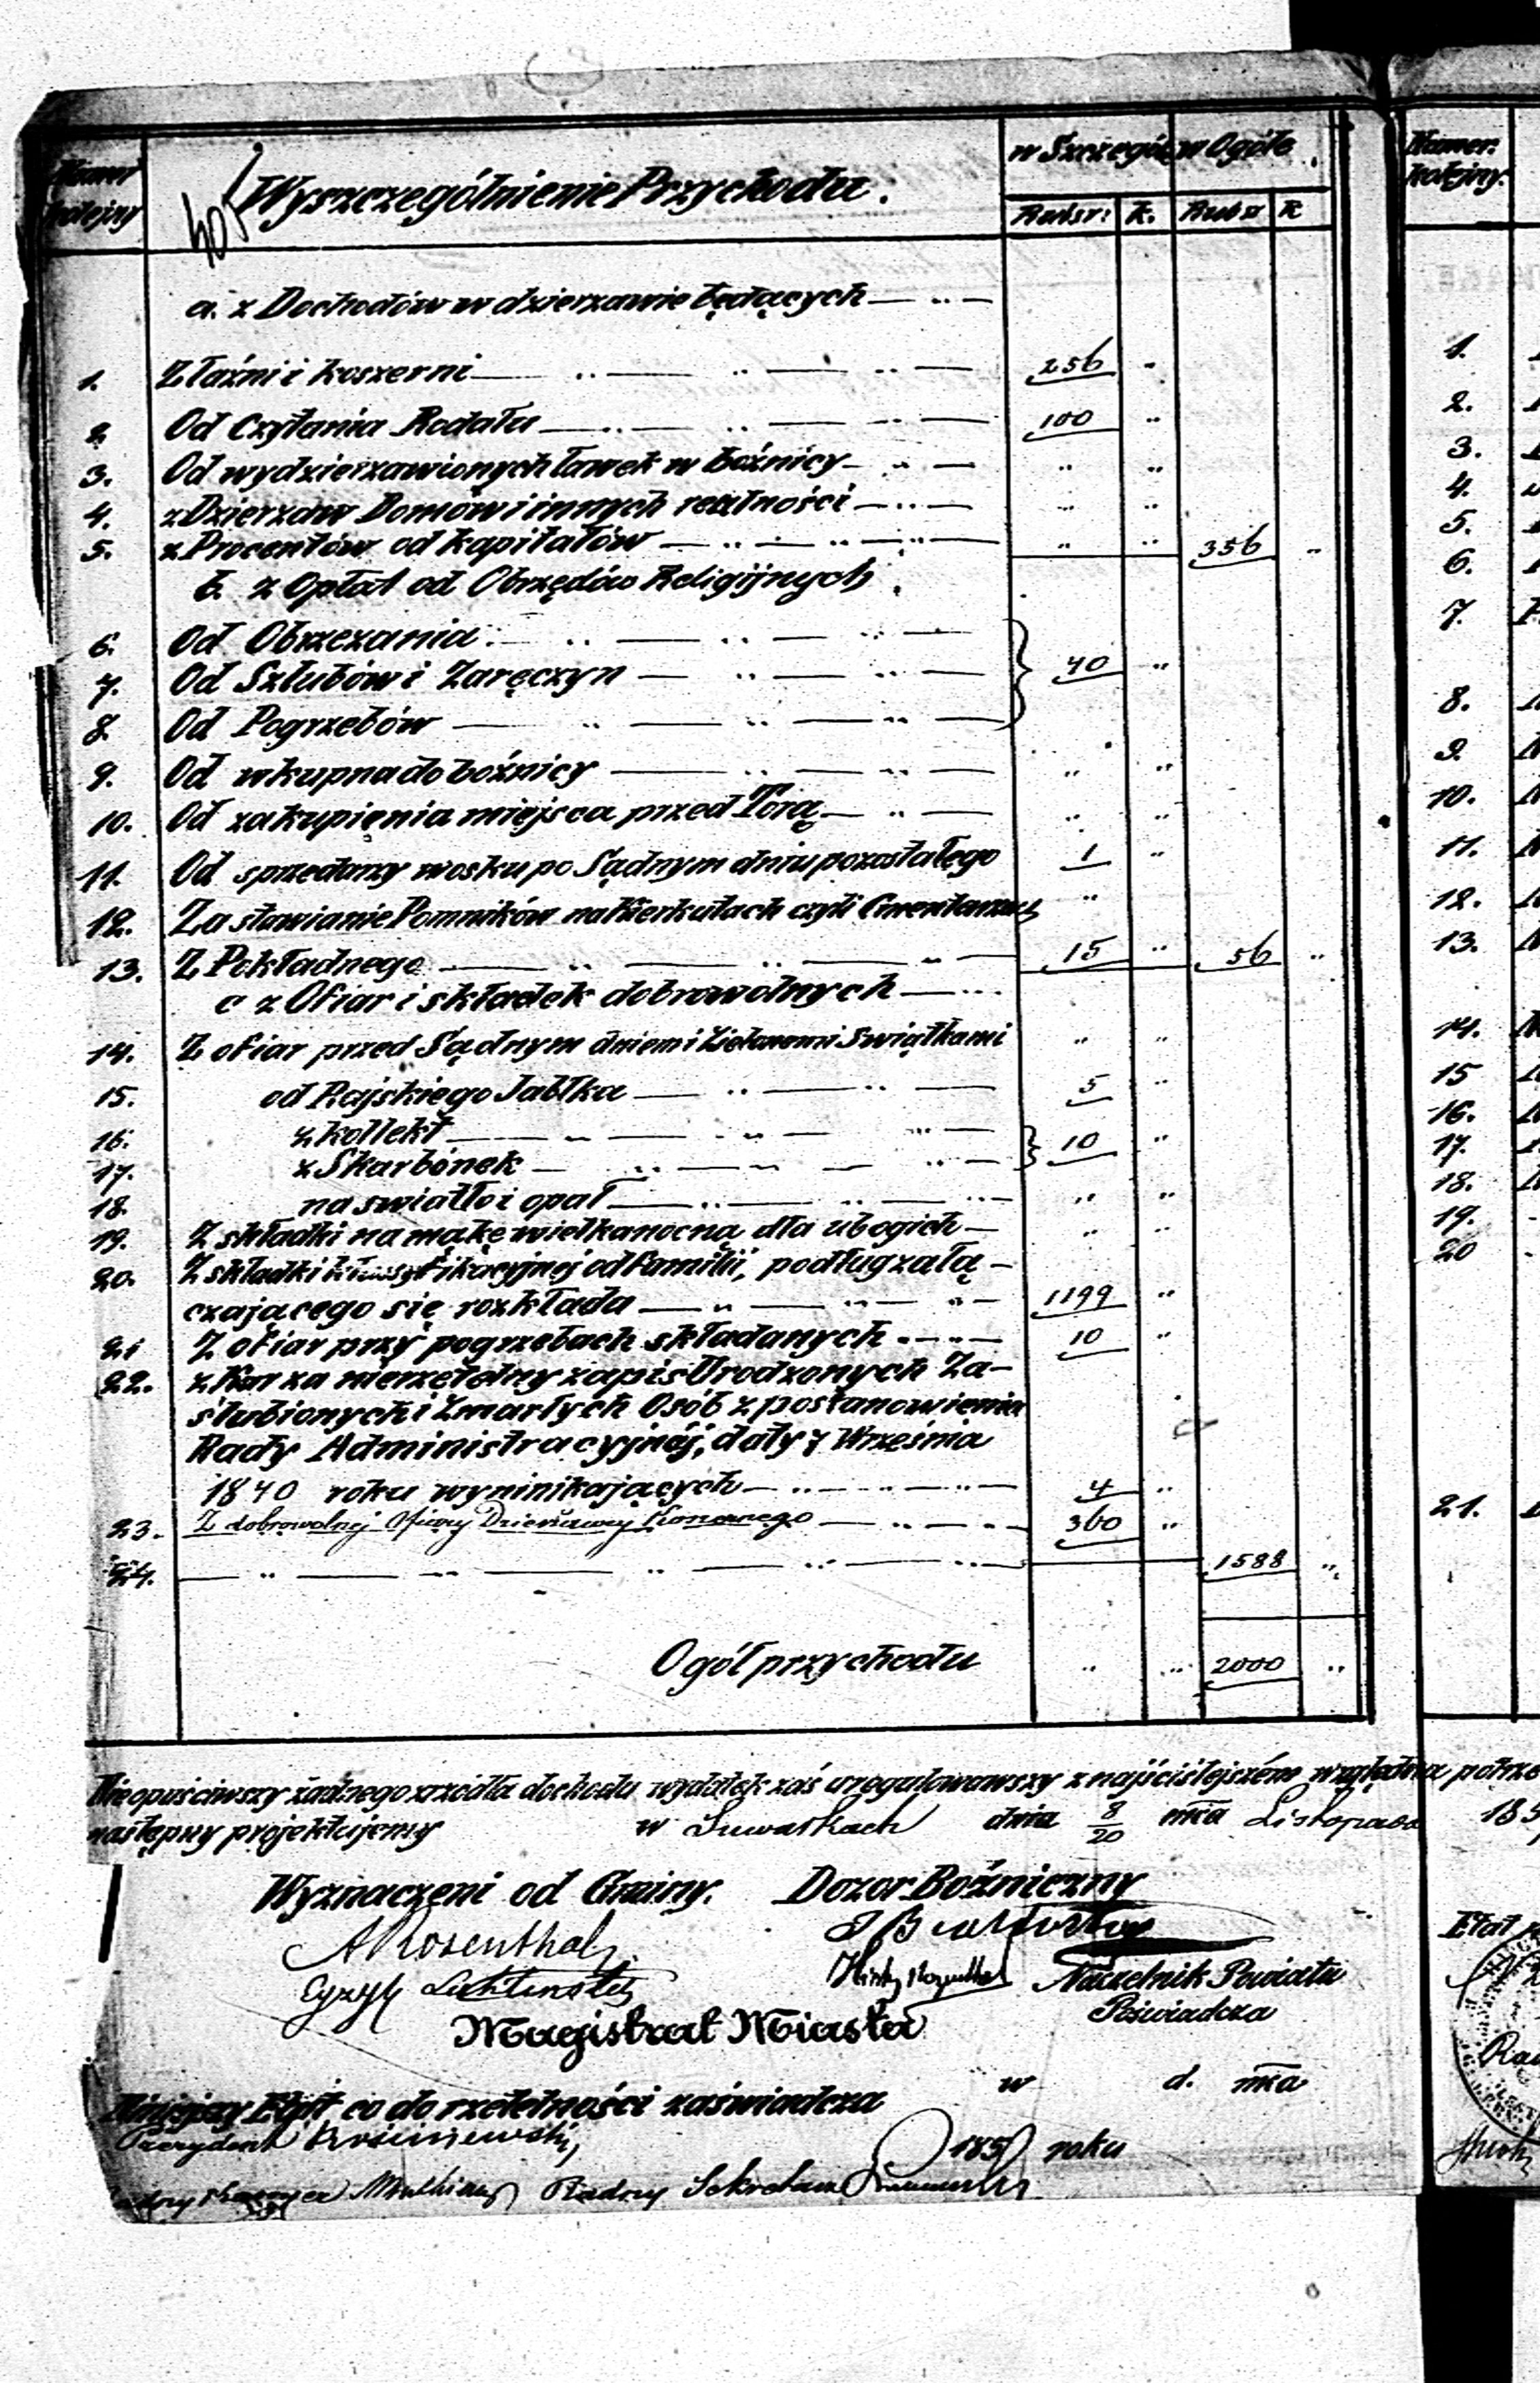 Numer kolejny
Wyszczególnienie Przychodu.
w Szczególe w Ogóle
Rubsr: k. Rubsr k
a. z Dochodów w dzierzawie będących
1. Z łaźni i koszerni 256 "
2. Od Czytania Rodału 100 "
3. Od wydzierzawionych ławek w bóźnicy " "
4. z Dzierzaw Domów i innych realności " "
5. z Procentów od kapitałów " " 356 "
b. z Opłat od Obrzędów Religijnych
6. Od Obrzezania
7. Od Szlubów i Zaręczyn 40 "
8. Od Pogrzebów
9. Od wkupna do bóźnicy " "
10. Od zakupienia miejsca przed Torą " "
11. Od sprzedaży wosku po Sądnym dniu pozostałego 1 "
12. Za stawianie Pomników na Kierkutach czyli Cmentarzu "
13. Z Pokładnego 15 " 56 "
c z Ofiar i składek dobrowolnych
14. Z ofiar przed Sądnym dniem i Zielonemi Swiątkami " "
15. od Rajskiego Jabłka 5 "
16. z kollekt
17. z Skarbónek 10 "
18. na swiatło i opał " "
19. Z składki na mąkę wielkanocną dla ubogich " "
20. Z składki klassyfikacyjnej od familii, podług załą-
czającego się rozkłada 1199 "
21 Z ofiar przy pogrzebach składanych 10 "
22. z Kar za nierzetelny zapis Urodzonych Za-
ślubionych i Zmarłych Osób z postanowienia
Rady Administracyjnéj, daty 7 Września
1840 roku wyninikających 4 "
23. Z dobrowolnej Ofiary Dzierżawcy Konsumego 360 "
24. 1588 "
Ogół przychodu " " 2000 "
Nieopuściwszy żadnego zrzódła dochodu wydatek zaś uregulowawszy z najściślejszém względem
następny projektujemy w Suwałkach dnia 8/20 mca Listopada 185
Wyznaczeni od Gminy. Dozor Bóźniczny
A Rosenthal
Lichtenstein
Naczelnik Powiatu
Poświadcza
Magistrat Miasta
w d. mca
Niniejszy Etat co do rzetelności zaświadcza
Prezydent
185 roku
Radny Sekretarz
Numer: kolejny.
1.
2.
3.
4.
5.
6.
7.
8.
9.
10.
11.
12.
13.
14.
15
16.
17.
18.
19.
20
21.
Etat